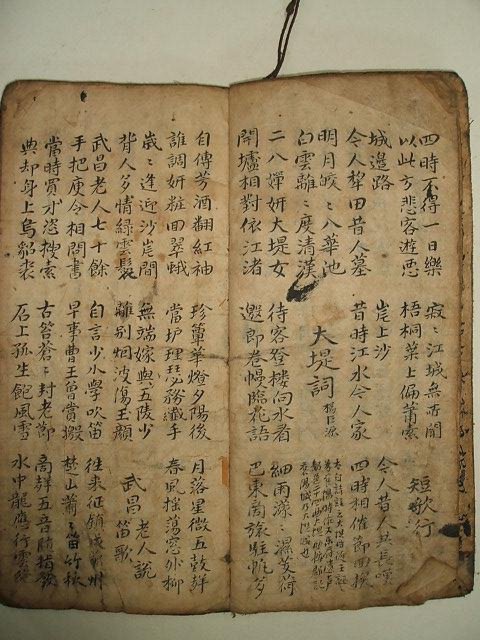 四時不得一日樂
以此方悲客遊惡
寂〻江城無所聞
梧桐葉上偏蕭索
短歌行
城邉路
今人犂田昔人墓
岸上沙
昔時江水今人家
今人昔人共長嘆
四時相催節回換
明月皎〻入華池
白雲離〻度清漢
大堤詞
楊巨源
二八嬋妍大堤女
開壚相對依江渚
待客登楼向水看
邀郎卷幔臨花語
細雨濛〻濕芰荷
巴東商旅駐帷多
自傳芳酒翻紅袖
誰調妍粧回翠蛾
珍簟華燈夕陽後
當垆理瑟矜纖手
月落星微五鼓聲
春風搖蕩窓外柳
歲〻逢迎沙岸間
背人多情綠雲鬟
無端嫁與五陵少
離別烟波傷玉顏
武昌老人說
笛歌
武昌老人七十餘
手把庾令相問書
自言少小學吹笛
早事曹王曾賞激
徃来征鎮戍蘄州
楚山蕭〻笛竹秋
當時買材恣搜索
典却身上烏貂裘
古苔蒼〻封老節
石上孤生飽風雪
商聲五音隨指發
水中龍應行雲絶